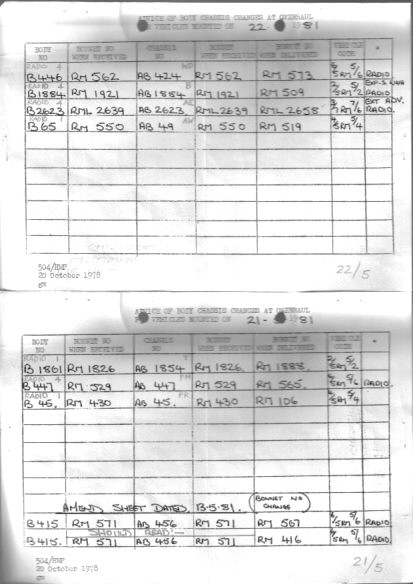 ADVICE OF BODY CHASSIS CHANGES AT OVERHAUL
VEHICLES MOUNTED ON 22 81
BODY NO BONNET NO WHEN RECEIVED CHASSIS NO BONNET NO WHEN RECEIVED BONNET NO WHEN DELIVERED VEHICLE CODE
RADIO 4
B446 RM 562 AB 424 RM 562 RM 573 5RM 5/6 RADIO
RADIO 4 B
B1884 RM 1921 AB 1884 RM 1921 RM 509 5RM 5/2 RADIO
RADIO 4 EXT ADV.
B2623 RML 2639 AB 2623 RML 2639 RML 2658 7RM 7/6 RADIO.
B65 RM 550 AB 49 RM 550 RM 519 5RM 5/4
504/EMP
20 October 1978
22/5
ADVICE OF BODY CHASSIS CHANGES AT OVERHAUL
VEHICLES MOUNTED ON 21- 81
BODY NO BONNET NO WHEN RECEIVED CHASSIS NO BONNET NO WHEN RECEIVED BONNET NO WHEN DELIVERED VEHICLE CODE
RADIO 1
B1801 RM 1826 AB 1854 RM 1826 RM 1888. 5RM 5/2
RADIO 4
B447 RM 529 AB 447 RM 529 RM 565. 5RM 5/6 RADIO.
RADIO 1
B 45. RM 430 AB 45. RM 430 RM 106 5RM 5/4
AMEND SHEET DATED. 13.5.81. BONNET NO CHANGE
B415 RM 571 AB 456 RM 571 RM 567 5RM 5/6 RADIO
SHOULD READ:-
B415. RM 571 AB 456 RM 571 RM 416 5RM 5/6 RADIO.
504/EMP
20 October 1978
21/5